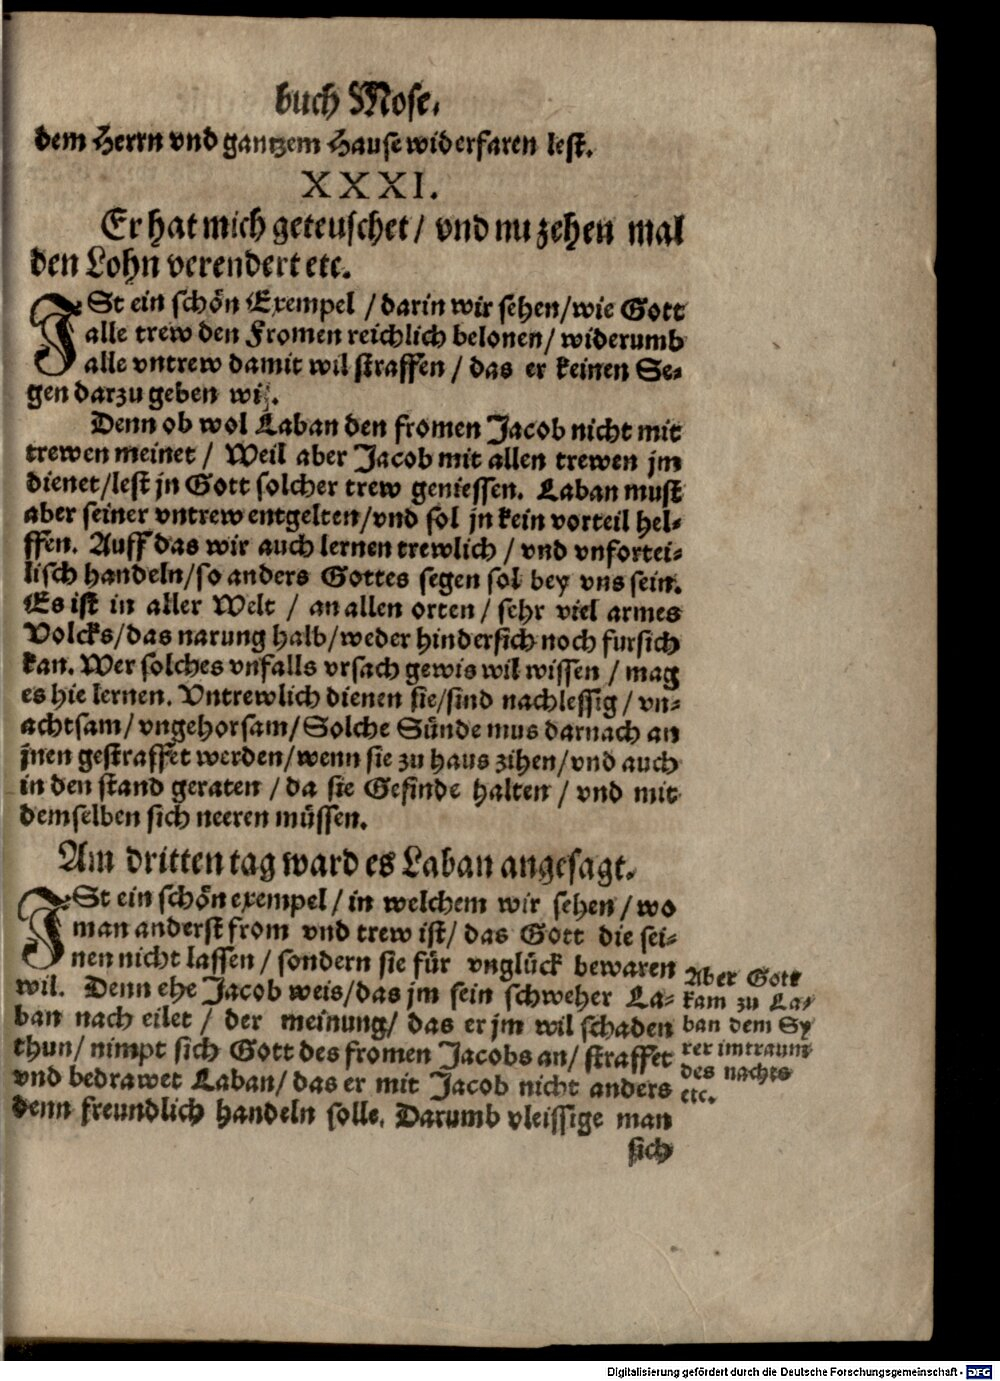 buch Mose.
dem Herrn vnd gantzem Hause widerfaren lest.
XXXI.
Er hat mich geteuschet / vnd nu zehen mal
den Lohn verendert etc.
JSt ein schön Exempel / darin wir sehen / wie Gott
alle trew den Fromen reichlich belonen / widerumb
alle vntrew damit wil straffen / das er keinen Se-
gen darzu geben wil.
Denn ob wol Laban den fromen Jacob nicht mit
trewen meinet / Weil aber Jacob mit allen trewen jm
dienet / lest jn Gott solcher trew geniessen. Laban must
aber seiner vntrew entgelten / vnd sol jn kein vorteil hel-
ffen. Auff das wir auch lernen trewlich / vnd vnfortei-
lisch handeln / so anders Gottes segen sol bey vns sein.
Es ist in aller Welt / an allen orten / sehr viel armes
Volcks / das narung halb / weder hindersich noch fursich
kan. Wer solches vnfalls vrsach gewis wil wissen / mag
es hie lernen. Vntrewlich dienen sie / sind nachlessig / vn-
achtsam / vngehorsam / Solche Sünde mus darnach an
jnen gestraffet werden / wenn sie zu haus zihen / vnd auch
in den stand geraten / da sie Gesinde halten / vnd mit
demselben sich neeren müssen.
Am dritten tag ward es Laban angesagt.
JSt ein schön exempel / in welchem wir sehen / wo
man anderst from vnd trew ist / das Gott die sei-
nen nicht lassen / sondern sie für vnglück bewaren
wil. Denn ehe Jacob weis / das jm sein schweher La-
ban nach eilet / der meinung / das er jm wil schaden
thun / nimpt sich Gott des fromen Jacobs an / straffet
vnd bedrawet Laban / das er mit Jacob nicht anders
denn freundlich handeln solle. Darumb vleissige man
sich
Aber Gott
kam zu La-
ban dem Sy
rer im traum
des nachts
etc.
Digitalisierung gefördert durch die Deutsche Forschungsgemeinschaft - DFG